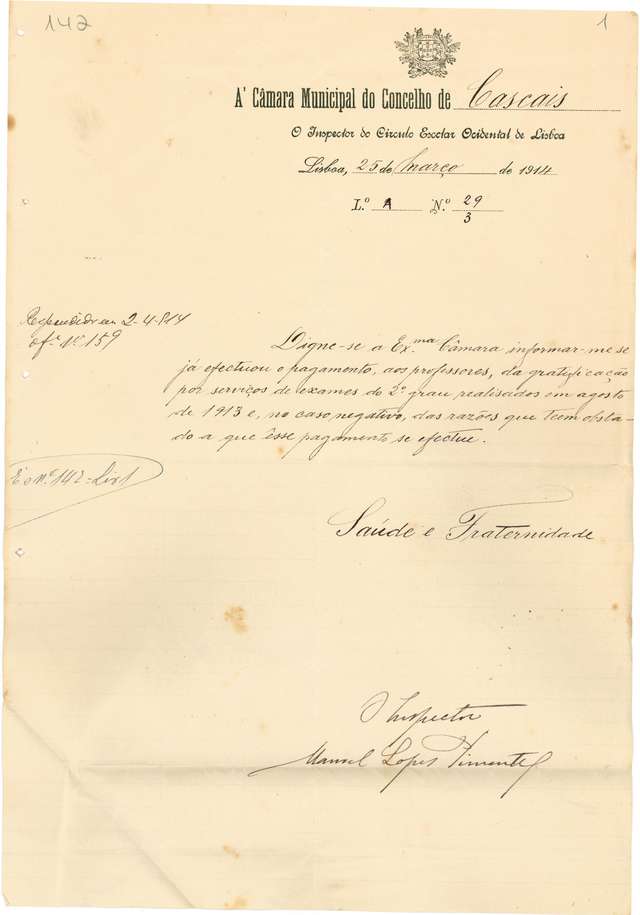 142
1
A' Câmara Municipal do Concelho de Cascais
O Inspector do Circulo Escolar Ocidental de Lisboa
Lisboa, 25 de Março de 1914
L.º A N.º 29
3
Respondido em 2-4-914
of.º Nº 159
Digne-se a Ex.ma Câmara informar-me se
já efectuou o pagamento, aos professores, da gratificação
por serviços de exames do 2º grau realisados em agosto
de 1913 e, no caso negativo, das razões que teem obsta-
do a que êsse pagamento se efectue.
E o nº 142-Liv 1
Saúde e Fraternidade
O Inspector
Manuel Lopes Pimentel